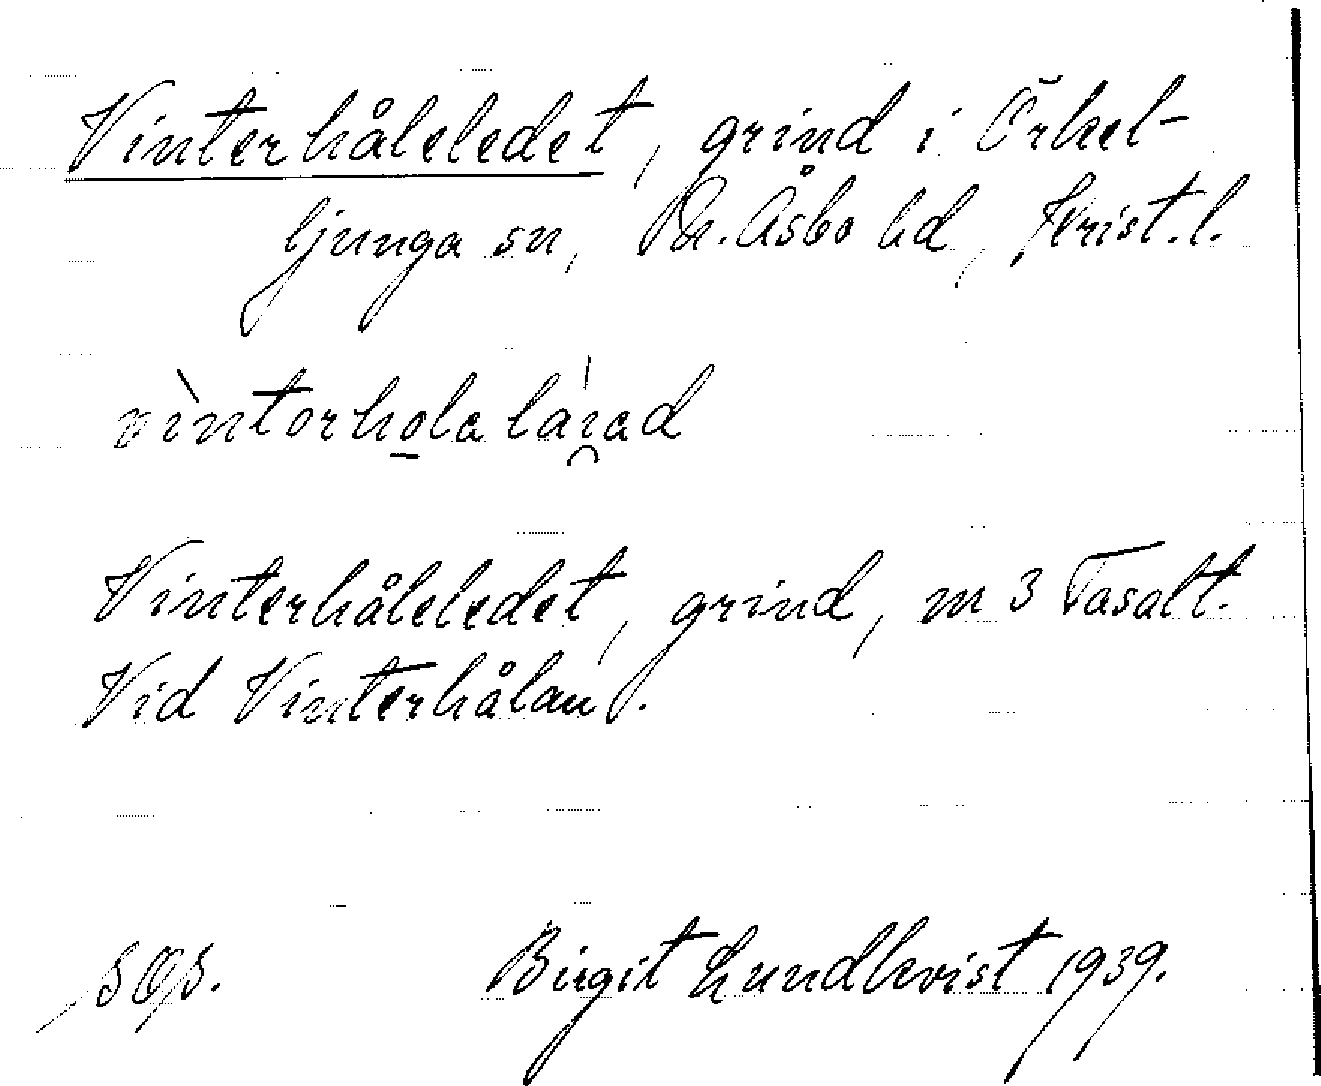 Vinterhåleledet, grind i Örkel-
ljunga sn, N. Åsbo hd, Krist. l.
Vinterhåleledet, grind, m 3 Tasalt.
Vid Vinterhålan.
Birgit Lundkvist 1939.